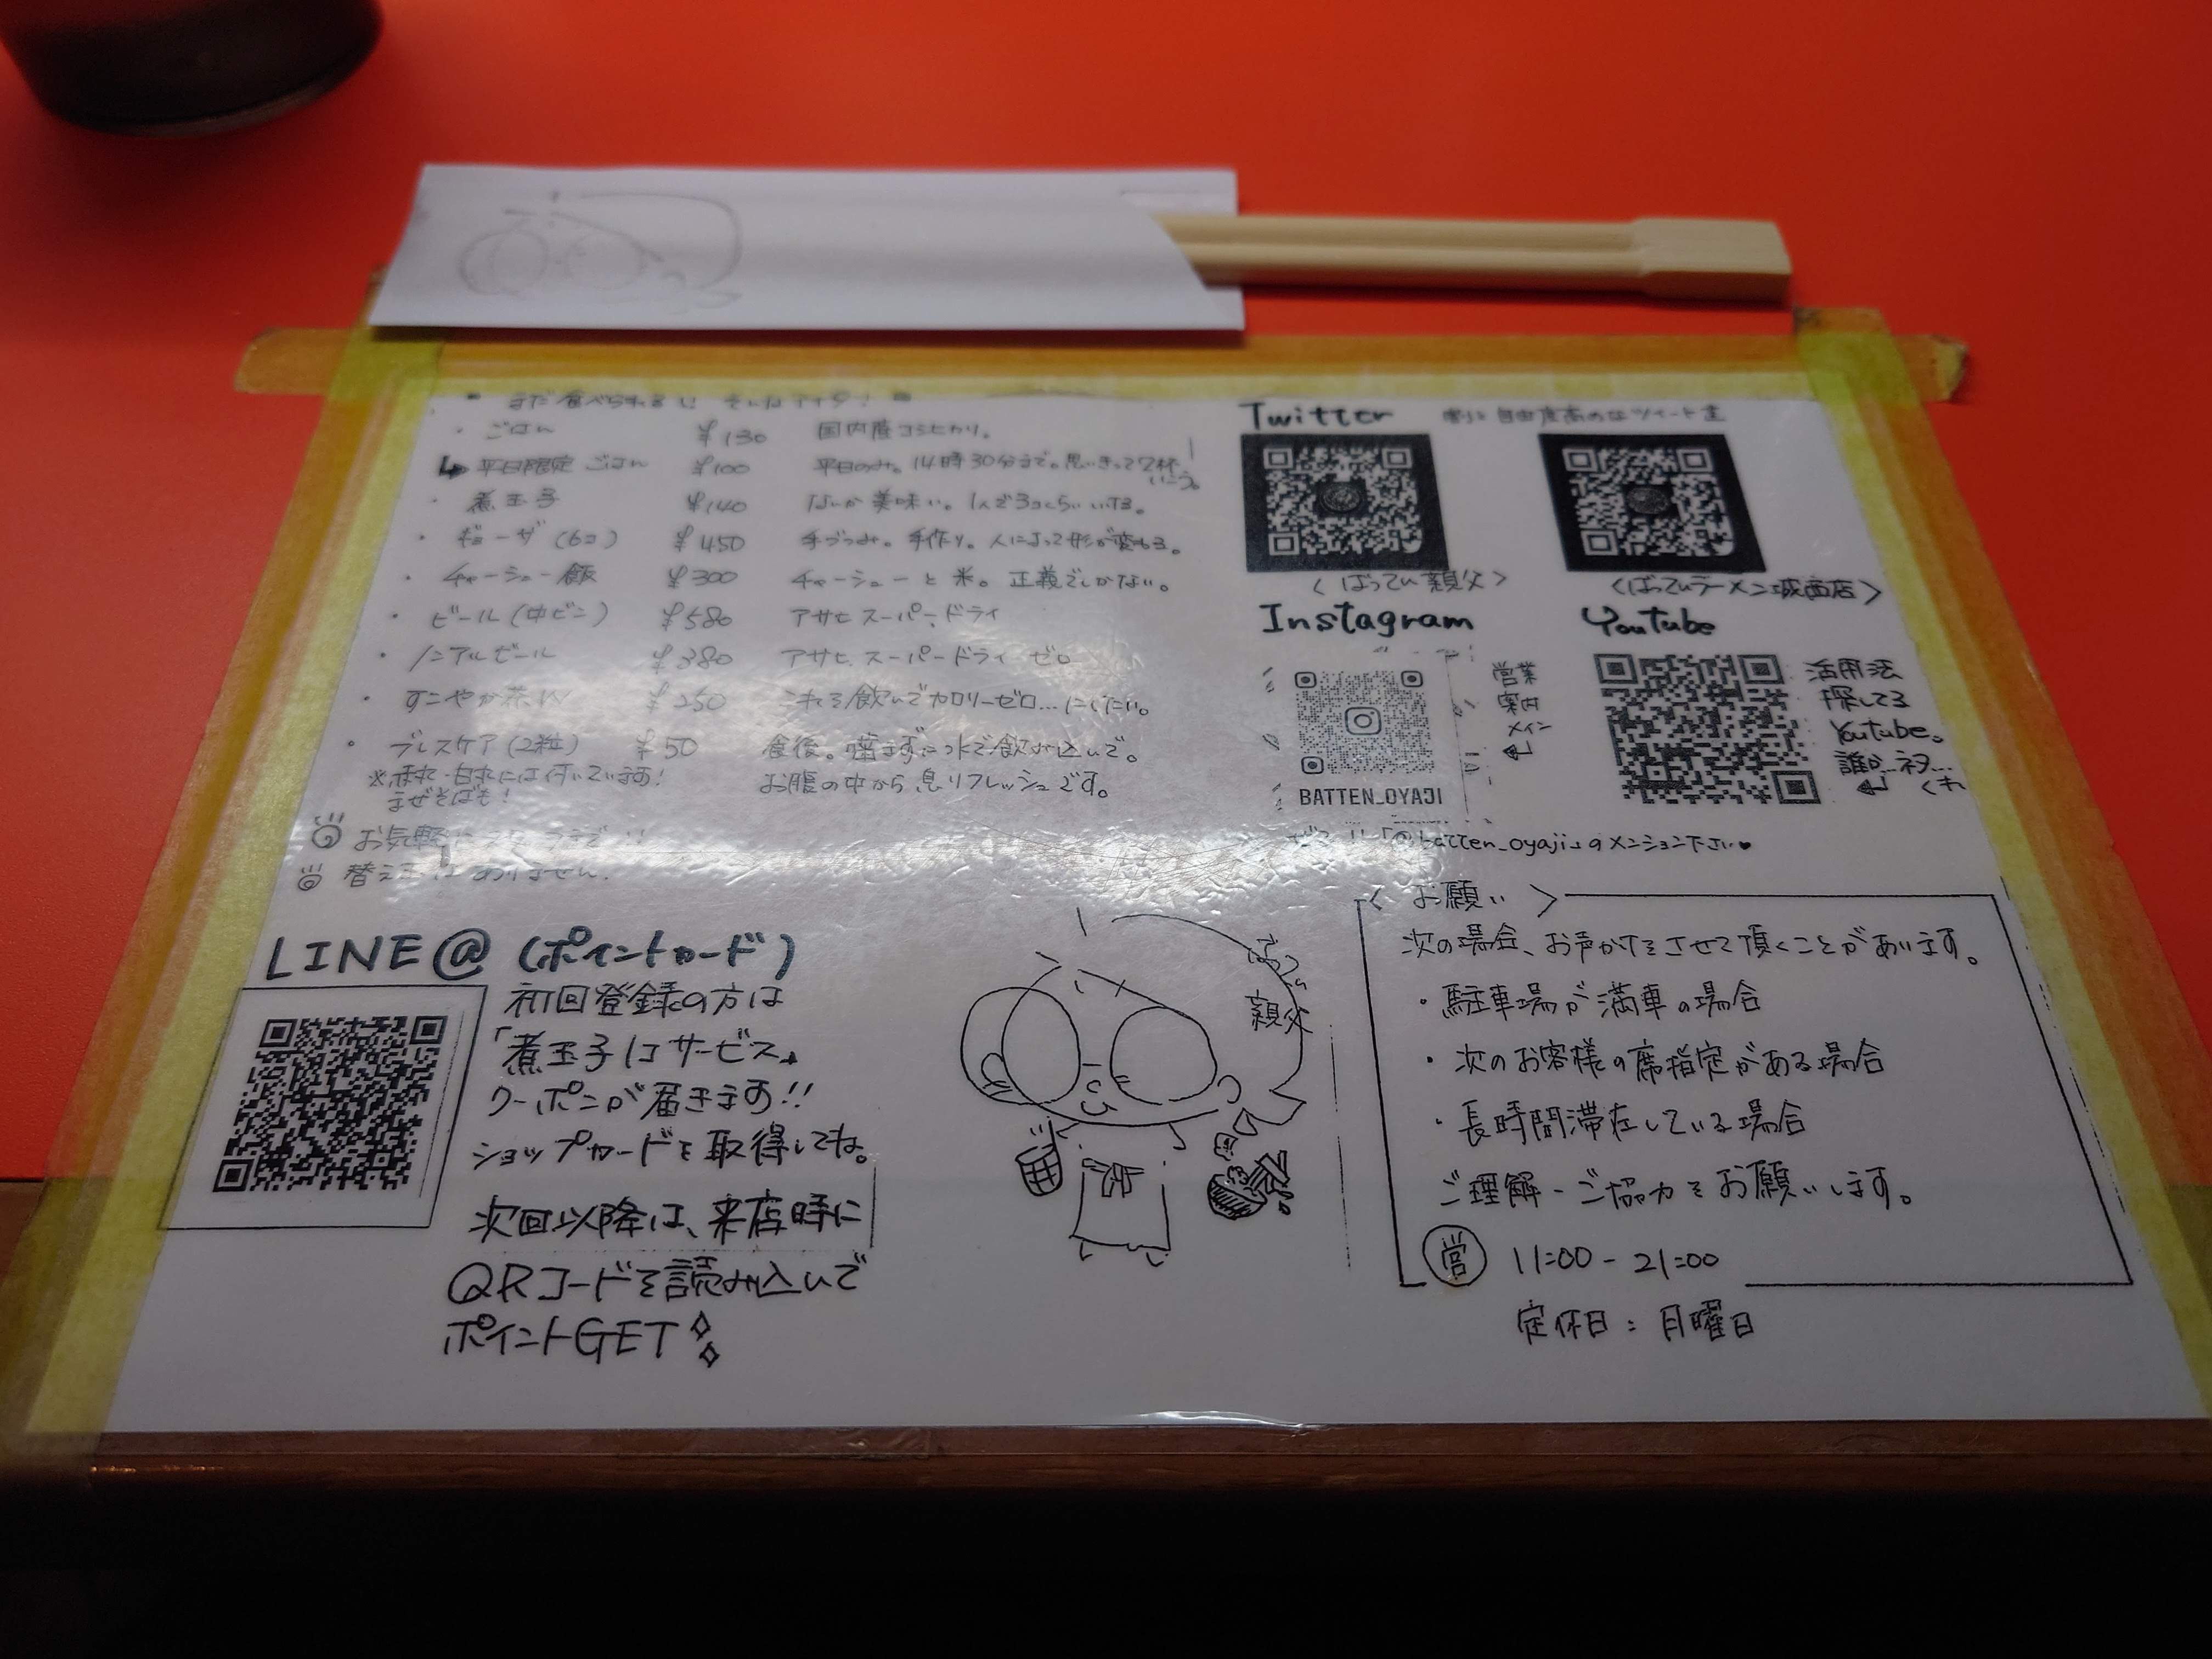 ・ごはん ¥130 国内産コシヒカリ。
平日限定 ごはん ¥100 平日のみ。14時30分まで。思いきって2杯いこう。
・煮玉子 ¥140 なんか美味い。1人で3コくらいいける。
・ギョーザ(6コ) ¥450 手づつみ。手作り。人によって形が変わる。
・チャーシュー飯 ¥300 チャーシューと米。正義でしかない。
・ビール(中ビン) ¥580 アサヒ スーパードライ
・ノンアルビール ¥380 アサヒ スーパードライ ゼロ
・すこやか茶W ¥250 これを飲んでカロリーゼロ…にしたい。
・ブレスケア(2粒) ¥50 食後。噛まずに水で飲み込んで。
お腹の中から息リフレッシュです。
※ ついています!
まぜそばも!
お気軽に
替え玉はありません。
Twitter
自由度高めなツイート
<ばってん親父>
<ばってんラーメン城西店>
Instagram
営業
案内
メイン
BATTEN_OYAJI
YouTube
活用法
探してる
YouTube。
誰か…ネタ…
くれ
「@batten_oyaji」のメンション下さい♥
LINE@ (ポイントカード)
初回登録の方は
「煮玉子1コサービス」
クーポンが届きます!!
ショップカードを取得してね。
次回以降は、来店時に
QRコードを読み込んで
ポイントGET
ばってん
親父
<お願い>
次の場合、お声かけをさせて頂くことがあります。
・駐車場が満車の場合
・次のお客様の席指定がある場合
・長時間滞在している場合
ご理解・ご協力をお願いします。
営 11:00-21:00
定休日:月曜日